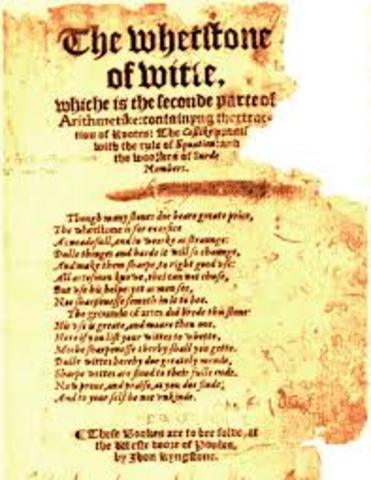 The whetstone
of witte,
whiche is the seconde parte of
Arithmetike: containyng thextrac-
tion of Rootes: The Coßike practise
with the rule of Equation: and
the woorkes of Surde
Nombers.
Though many stones doe beare greate price,
The whetstone is for exersice
As neadefull, and in woorke as straunge:
Dulle thinges and harde it will so chaunge,
And make them sharpe, to right good vse:
All artesmen knowe, thei can not chuse,
But vse his helpe: yet as men see,
Noe sharpenesse semeth in it to bee.
The grounde of artes did brede this stone:
His vse is greate, and moare then one.
Here if you list your wittes to whette,
Moche sharpenesse thereby shall you gette.
Dulle wittes hereby doe greately mende,
Sharpe wittes are fined to their fulle ende.
Now proue, and praise, as you doe finde,
And to your self be not vnkinde.
¶ These Bookes are to bee solde, at
the Weste doore of Poules,
by Jhon Kyngstone.